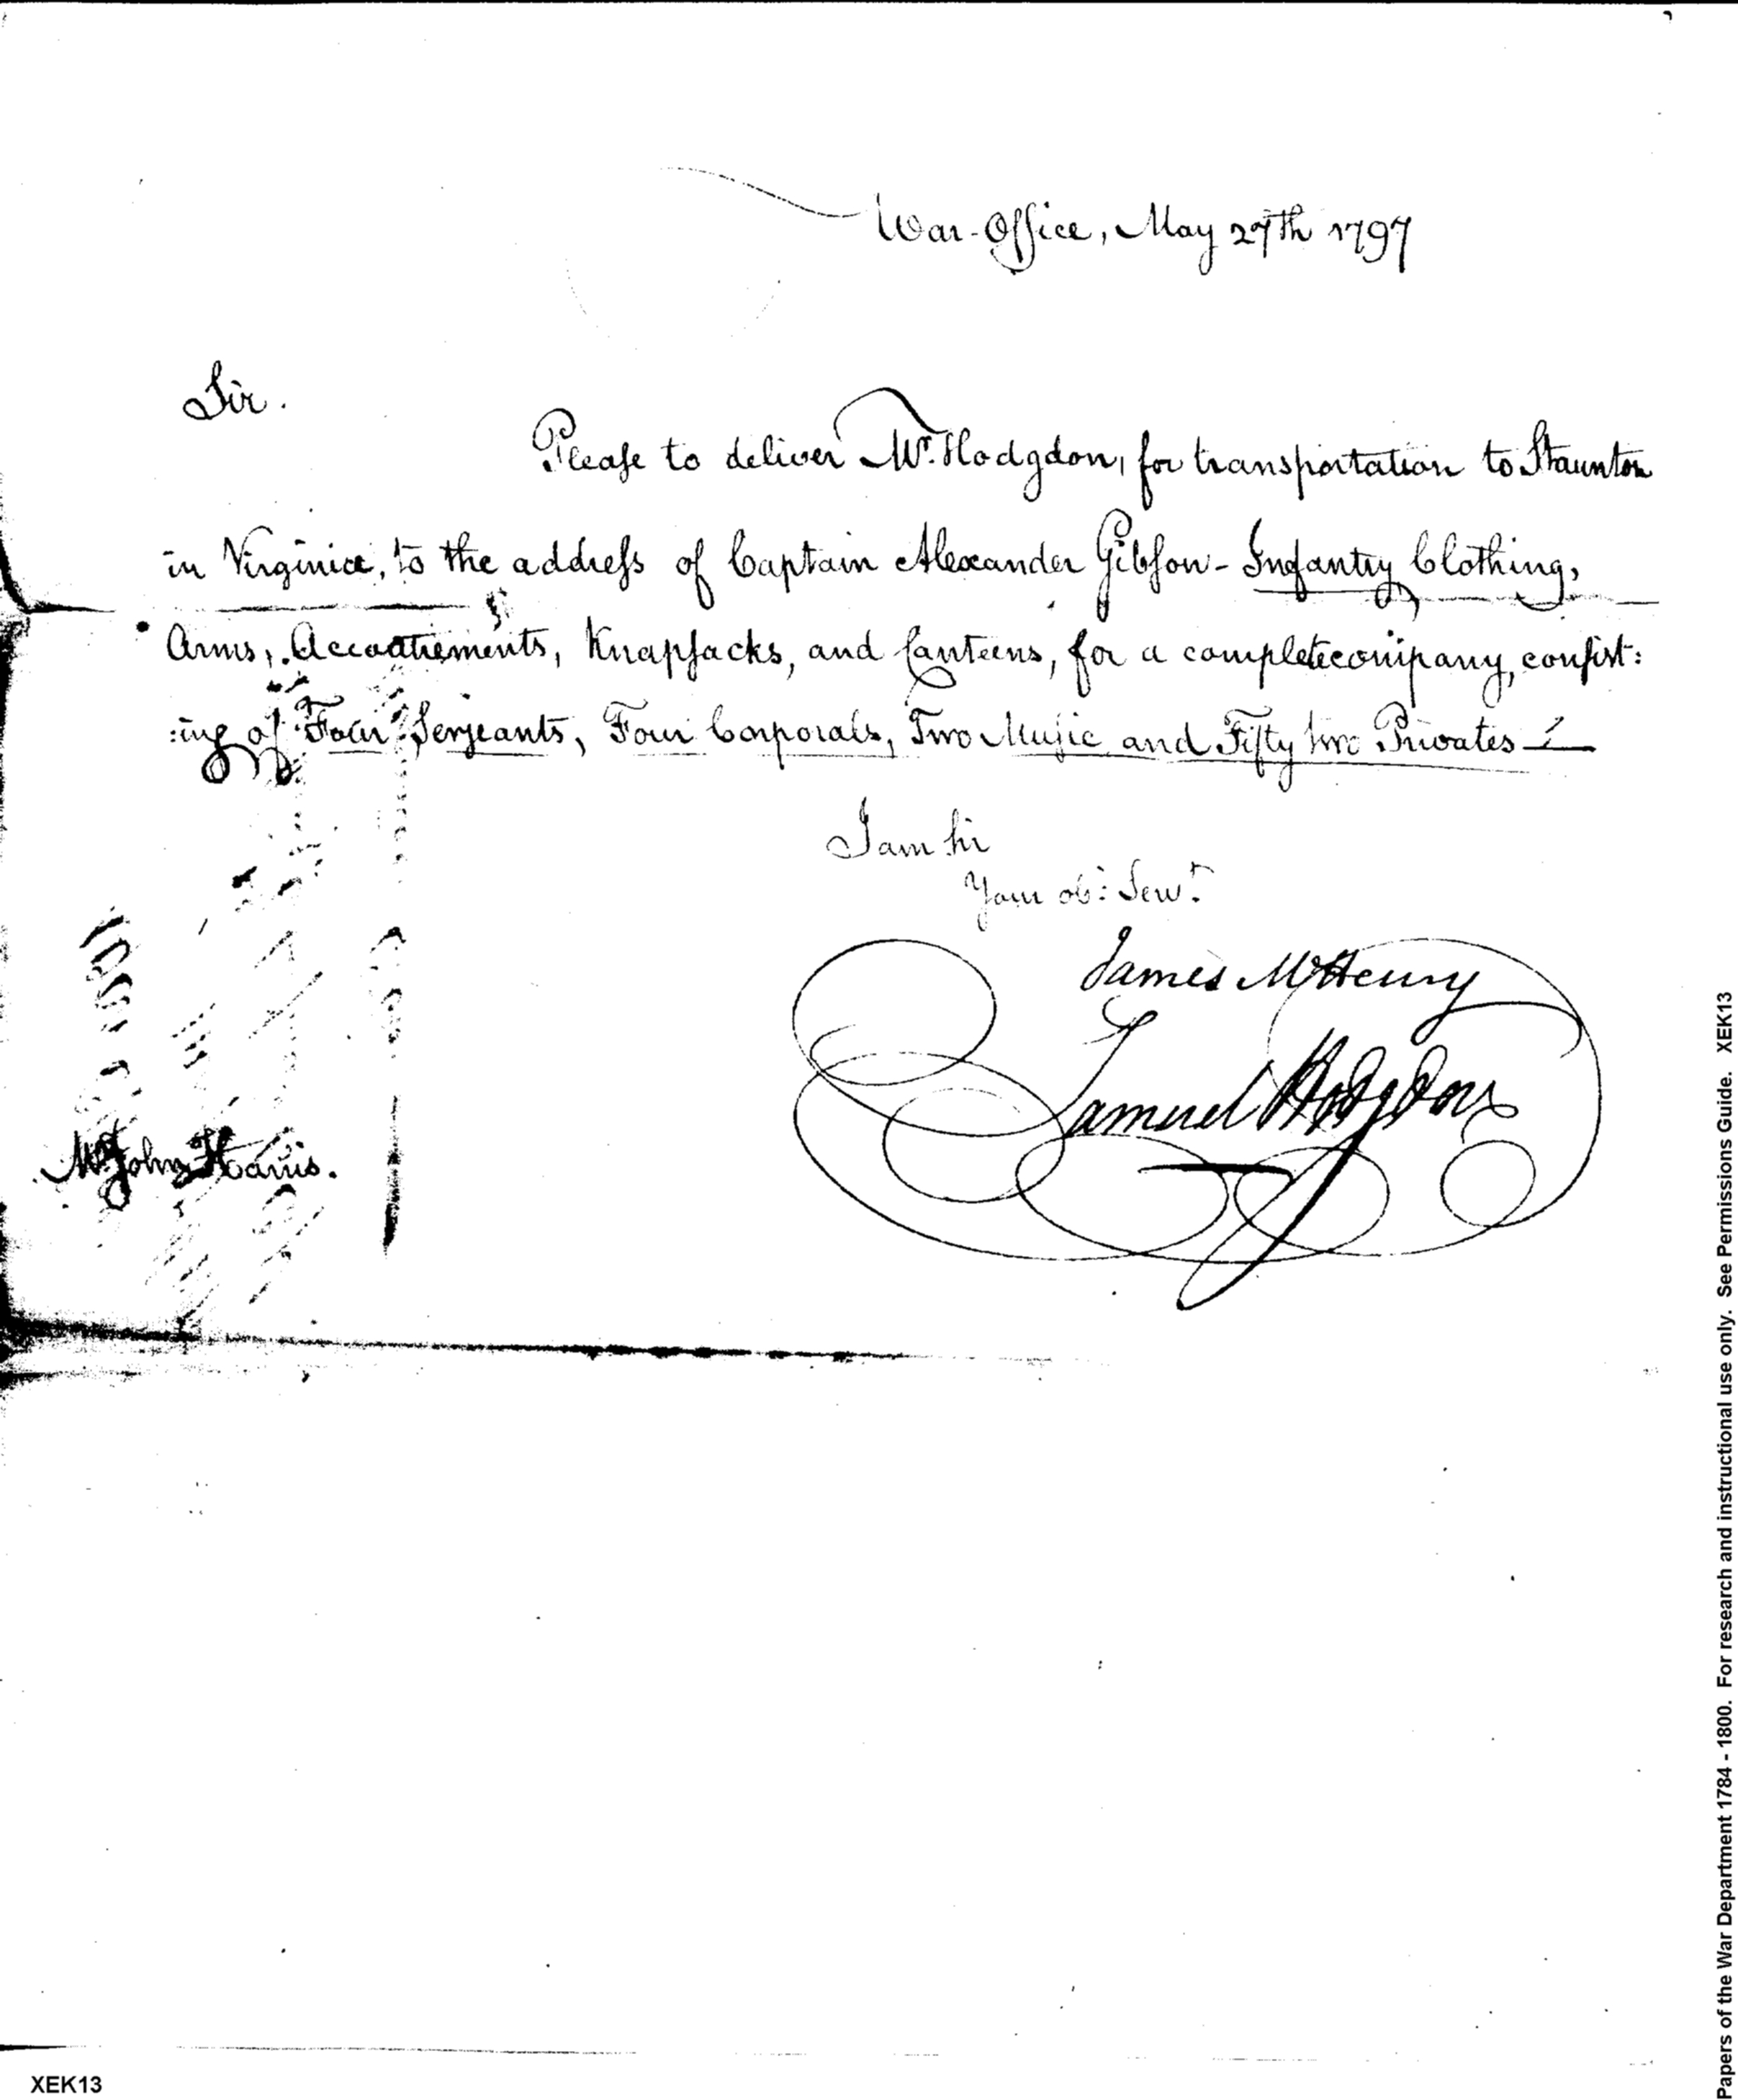 War-Office, May 27th 1797
Sir.
Please to deliver Mr. Hodgdon, for transportation to Staunton
in Virginia, to the address of Captain Alexander Gibson - Infantry Clothing,
Arms, Accoutrements, Knapsacks, and Canteens, for a complete company, consist:
:ing of Four Serjeants, Four Corporals, Two Music and Fifty two Privates
I am Sir
Your obt: Servt.
James McHenry
Samuel Hodgdon
Mr John Harris.
XEK13
Papers of the War Department 1784 - 1800. For research and instructional use only. See Permissions Guide. XEK13